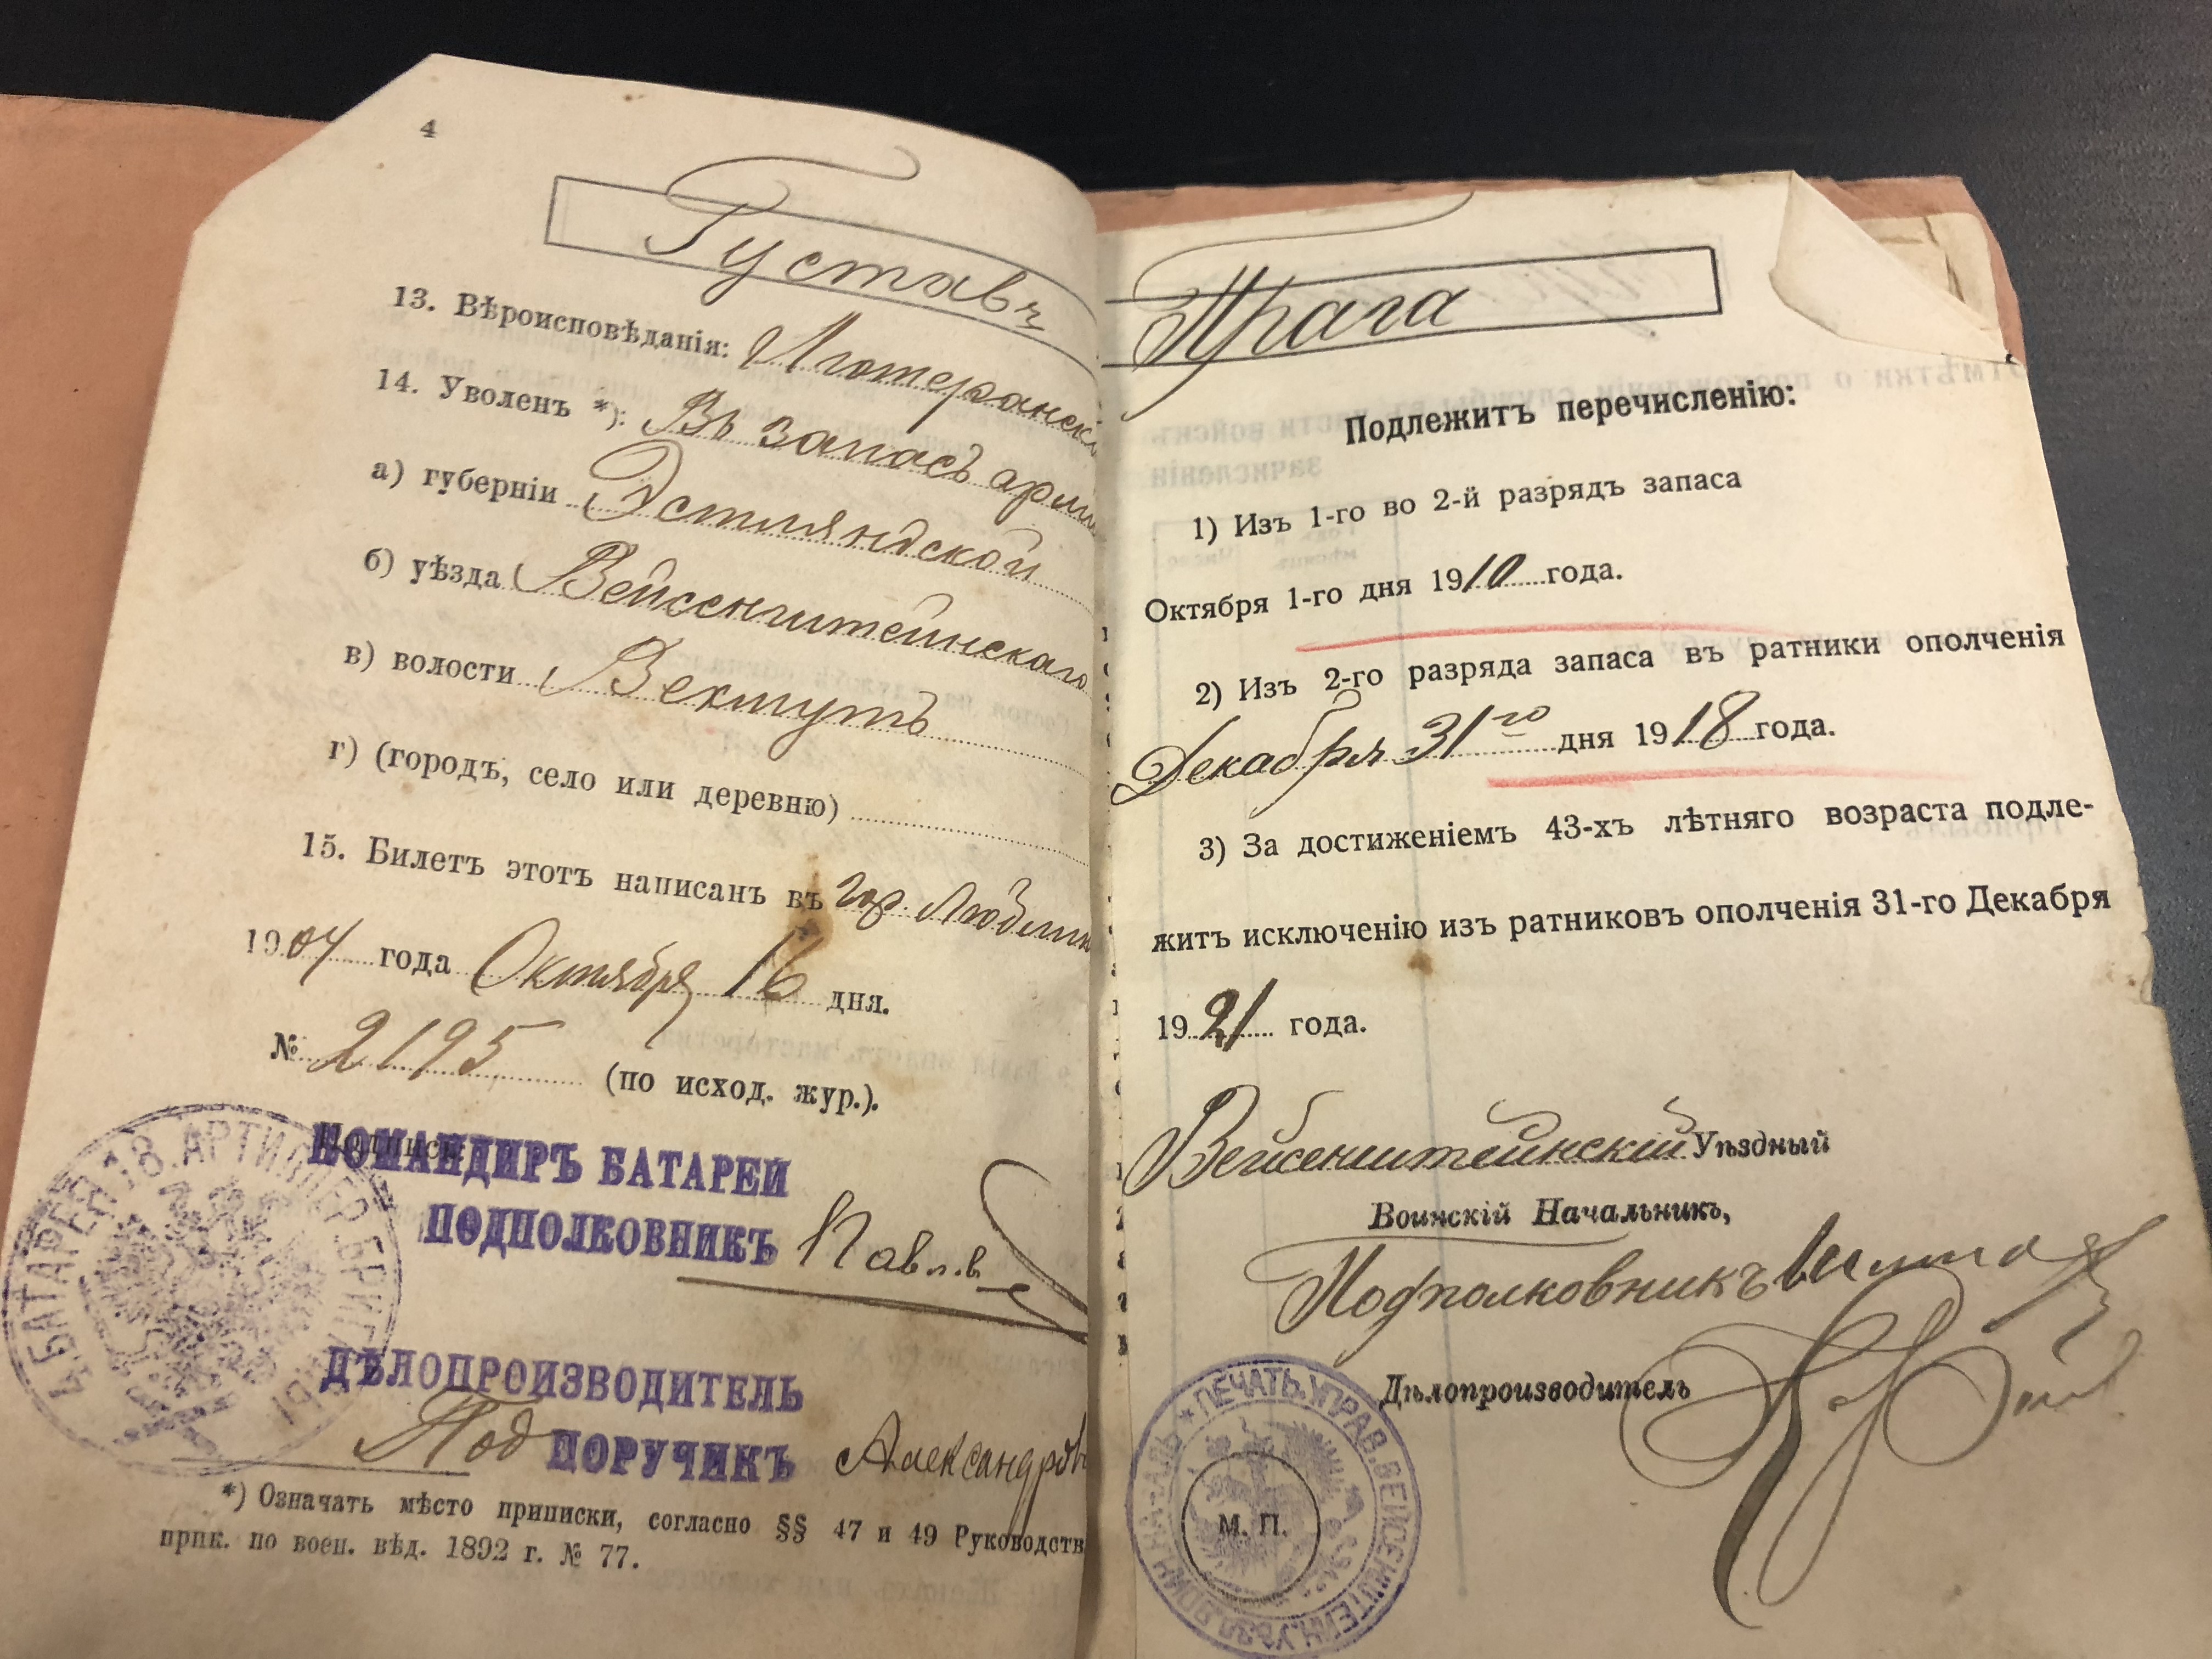 4
Густавъ
13. Вѣроисповѣданія: Лютеранскі
14. Уволенъ *): Въ запасъ арми
а) губерніи Эстляндской
б) уѣзда Вейсенштейнскаго
в) волости
г) (городъ, село или деревню)
15. Билетъ этотъ написанъ въ гор. Люблин
1904 года Октября 16 дня.
№ 2195 (по исход. жур.).
КОМАНДИРЪ БАТАРЕИ
ПОДПОЛКОВНИКЪ
ДѢЛОПРОИЗВОДИТЕЛЬ
Под ПОРУЧИКЪ Александровъ
4 БАТАРЕЯ 18 АРТИЛЛЕР. БРИГАДЫ
*) Означать мѣсто приписки, согласно §§ 47 и 49 Руководств
прик. по воен. вѣд. 1892 г. № 77.
Прага
Подлежитъ перечисленію:
1) Изъ 1-го во 2-й разрядъ запаса
Октября 1-го дня 1910 года.
2) Изъ 2-го разряда запаса въ ратники ополченія
Декабря 31го дня 1918 года.
3) За достиженіемъ 43-хъ лѣтняго возраста подле-
житъ исключенію изъ ратниковъ ополченія 31-го Декабря
1921 года.
Вейсенштейнскій Уѣздный
Воинскій Начальникъ,
Подполковникъ
Дѣлопроизводитель
ПЕЧАТЬ УПРАВ. ВЕЙСЕНШТЕЙН. УѢЗД. ВОИН. НА-ЛЯ
М. П.